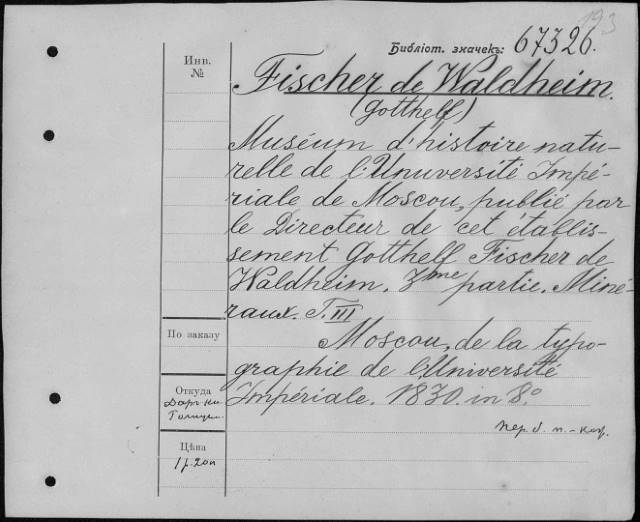 193
Библіот. значекъ: 67326.
Инв.
№
Fischer de Waldheim.
(Gotthelf)
Muséum d'histoire natu-
relle de l'Université Impé-
riale de Moscou, publié par
le Directeur de cet établis-
sement Gotthelf Fischer de
Waldheim. 3me partie. Miné-
raux. T. III
По заказу
Moscou, de la typo-
graphie de l'Université
Impériale. 1830. in 8°
Откуда
Даръ кн.
Голицы
пер. б. п.-кор.
Цѣна
1 р. 20 к